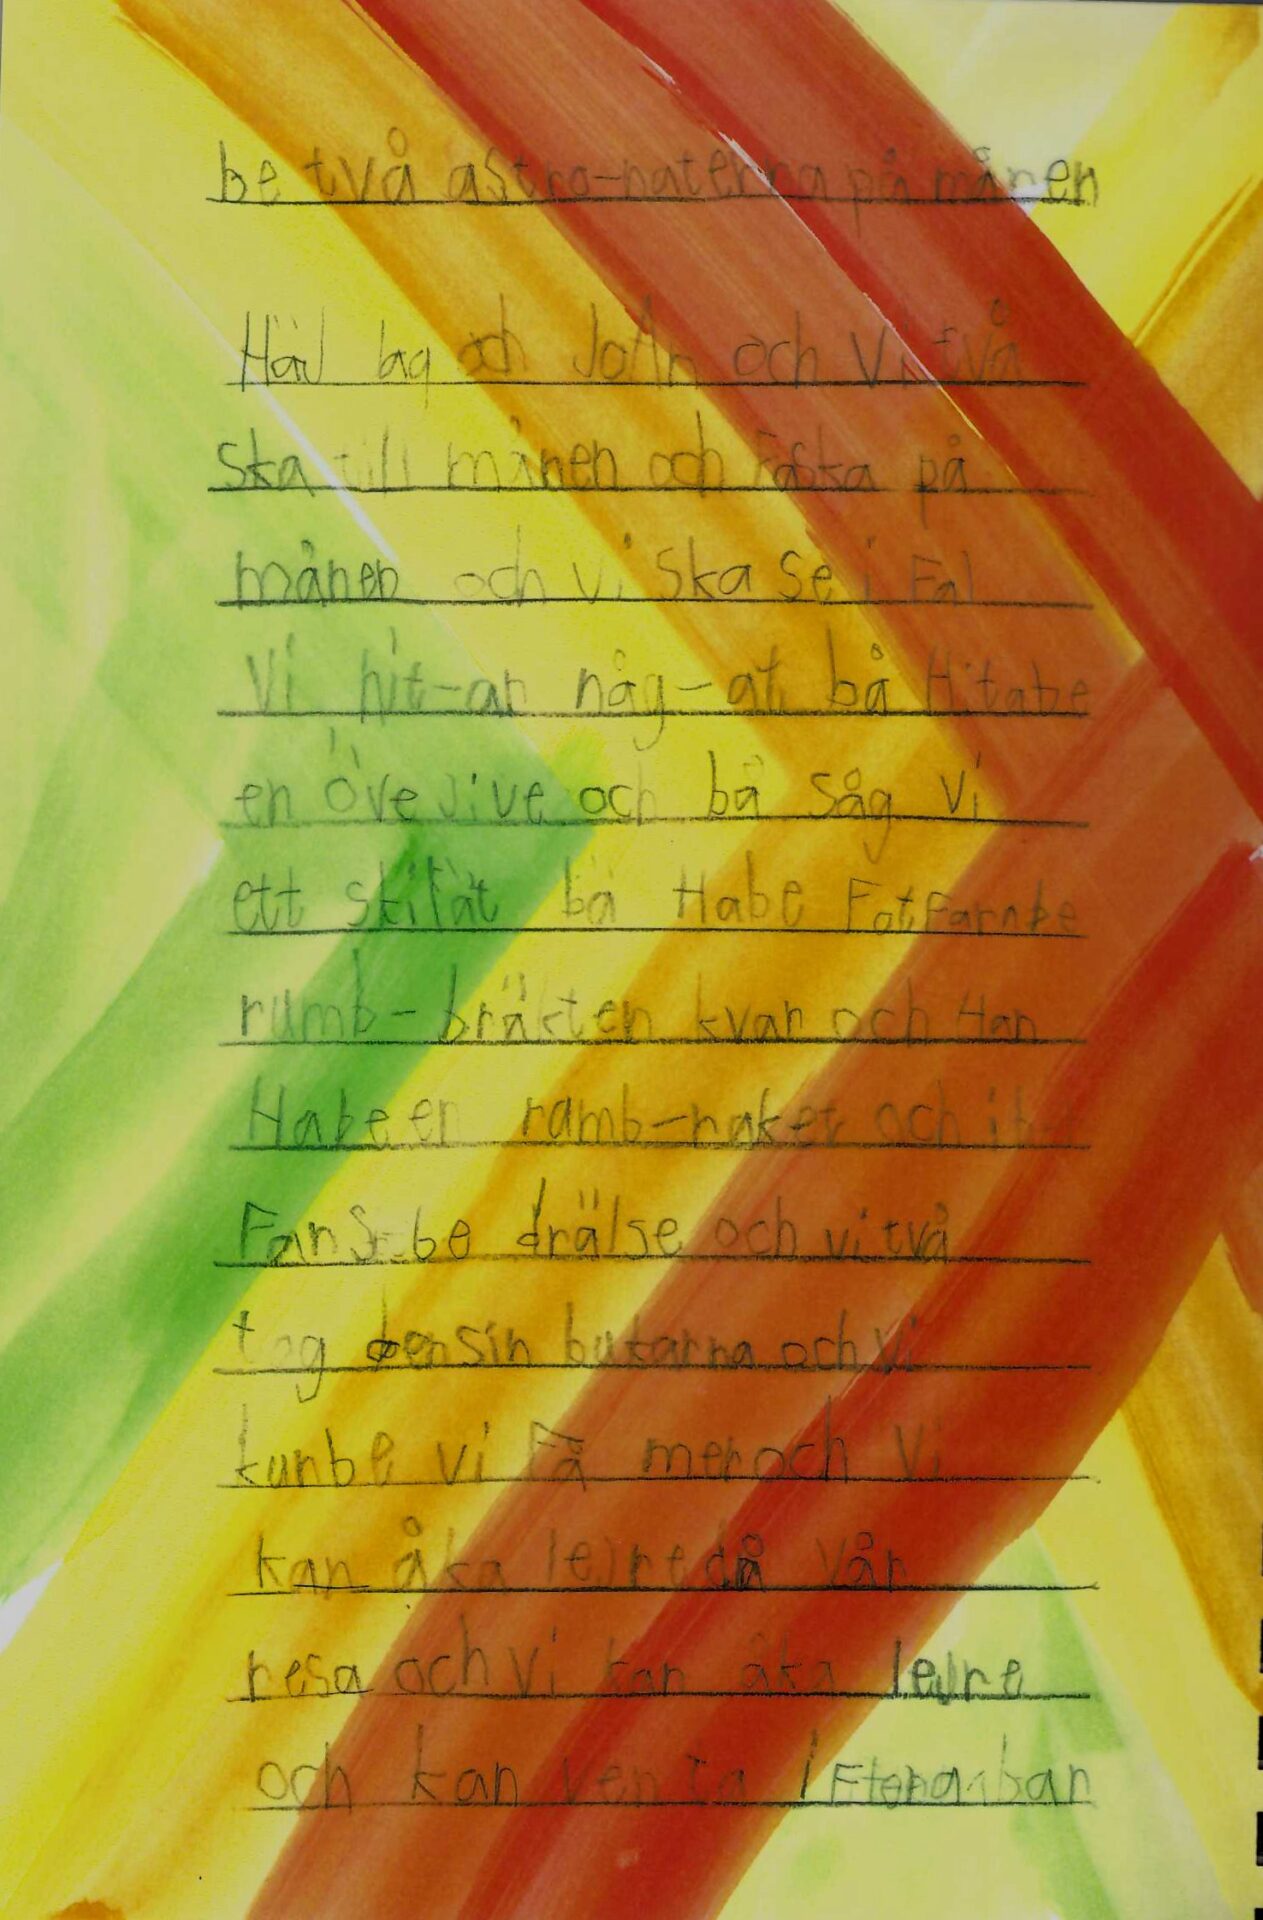 be två astro-naterna på månen
Häj jag och JoAn och Vi två
Ska till månen och Fåska på
månen och vi ska se i Fal
Vi hit-ar någ-at bå Hitabe
en öve jive och bå såg vi
ett skilät bå Habe Fotfarnbe
rumb-bräkten kvar och Han
Habe en ramb-raket och i
Fans be drälse och vi två
tog bensin butarna och vi
kunbe vi Få mer och Vi
kan åka lejre då vår
resa och vi kan åka lejre
och kan